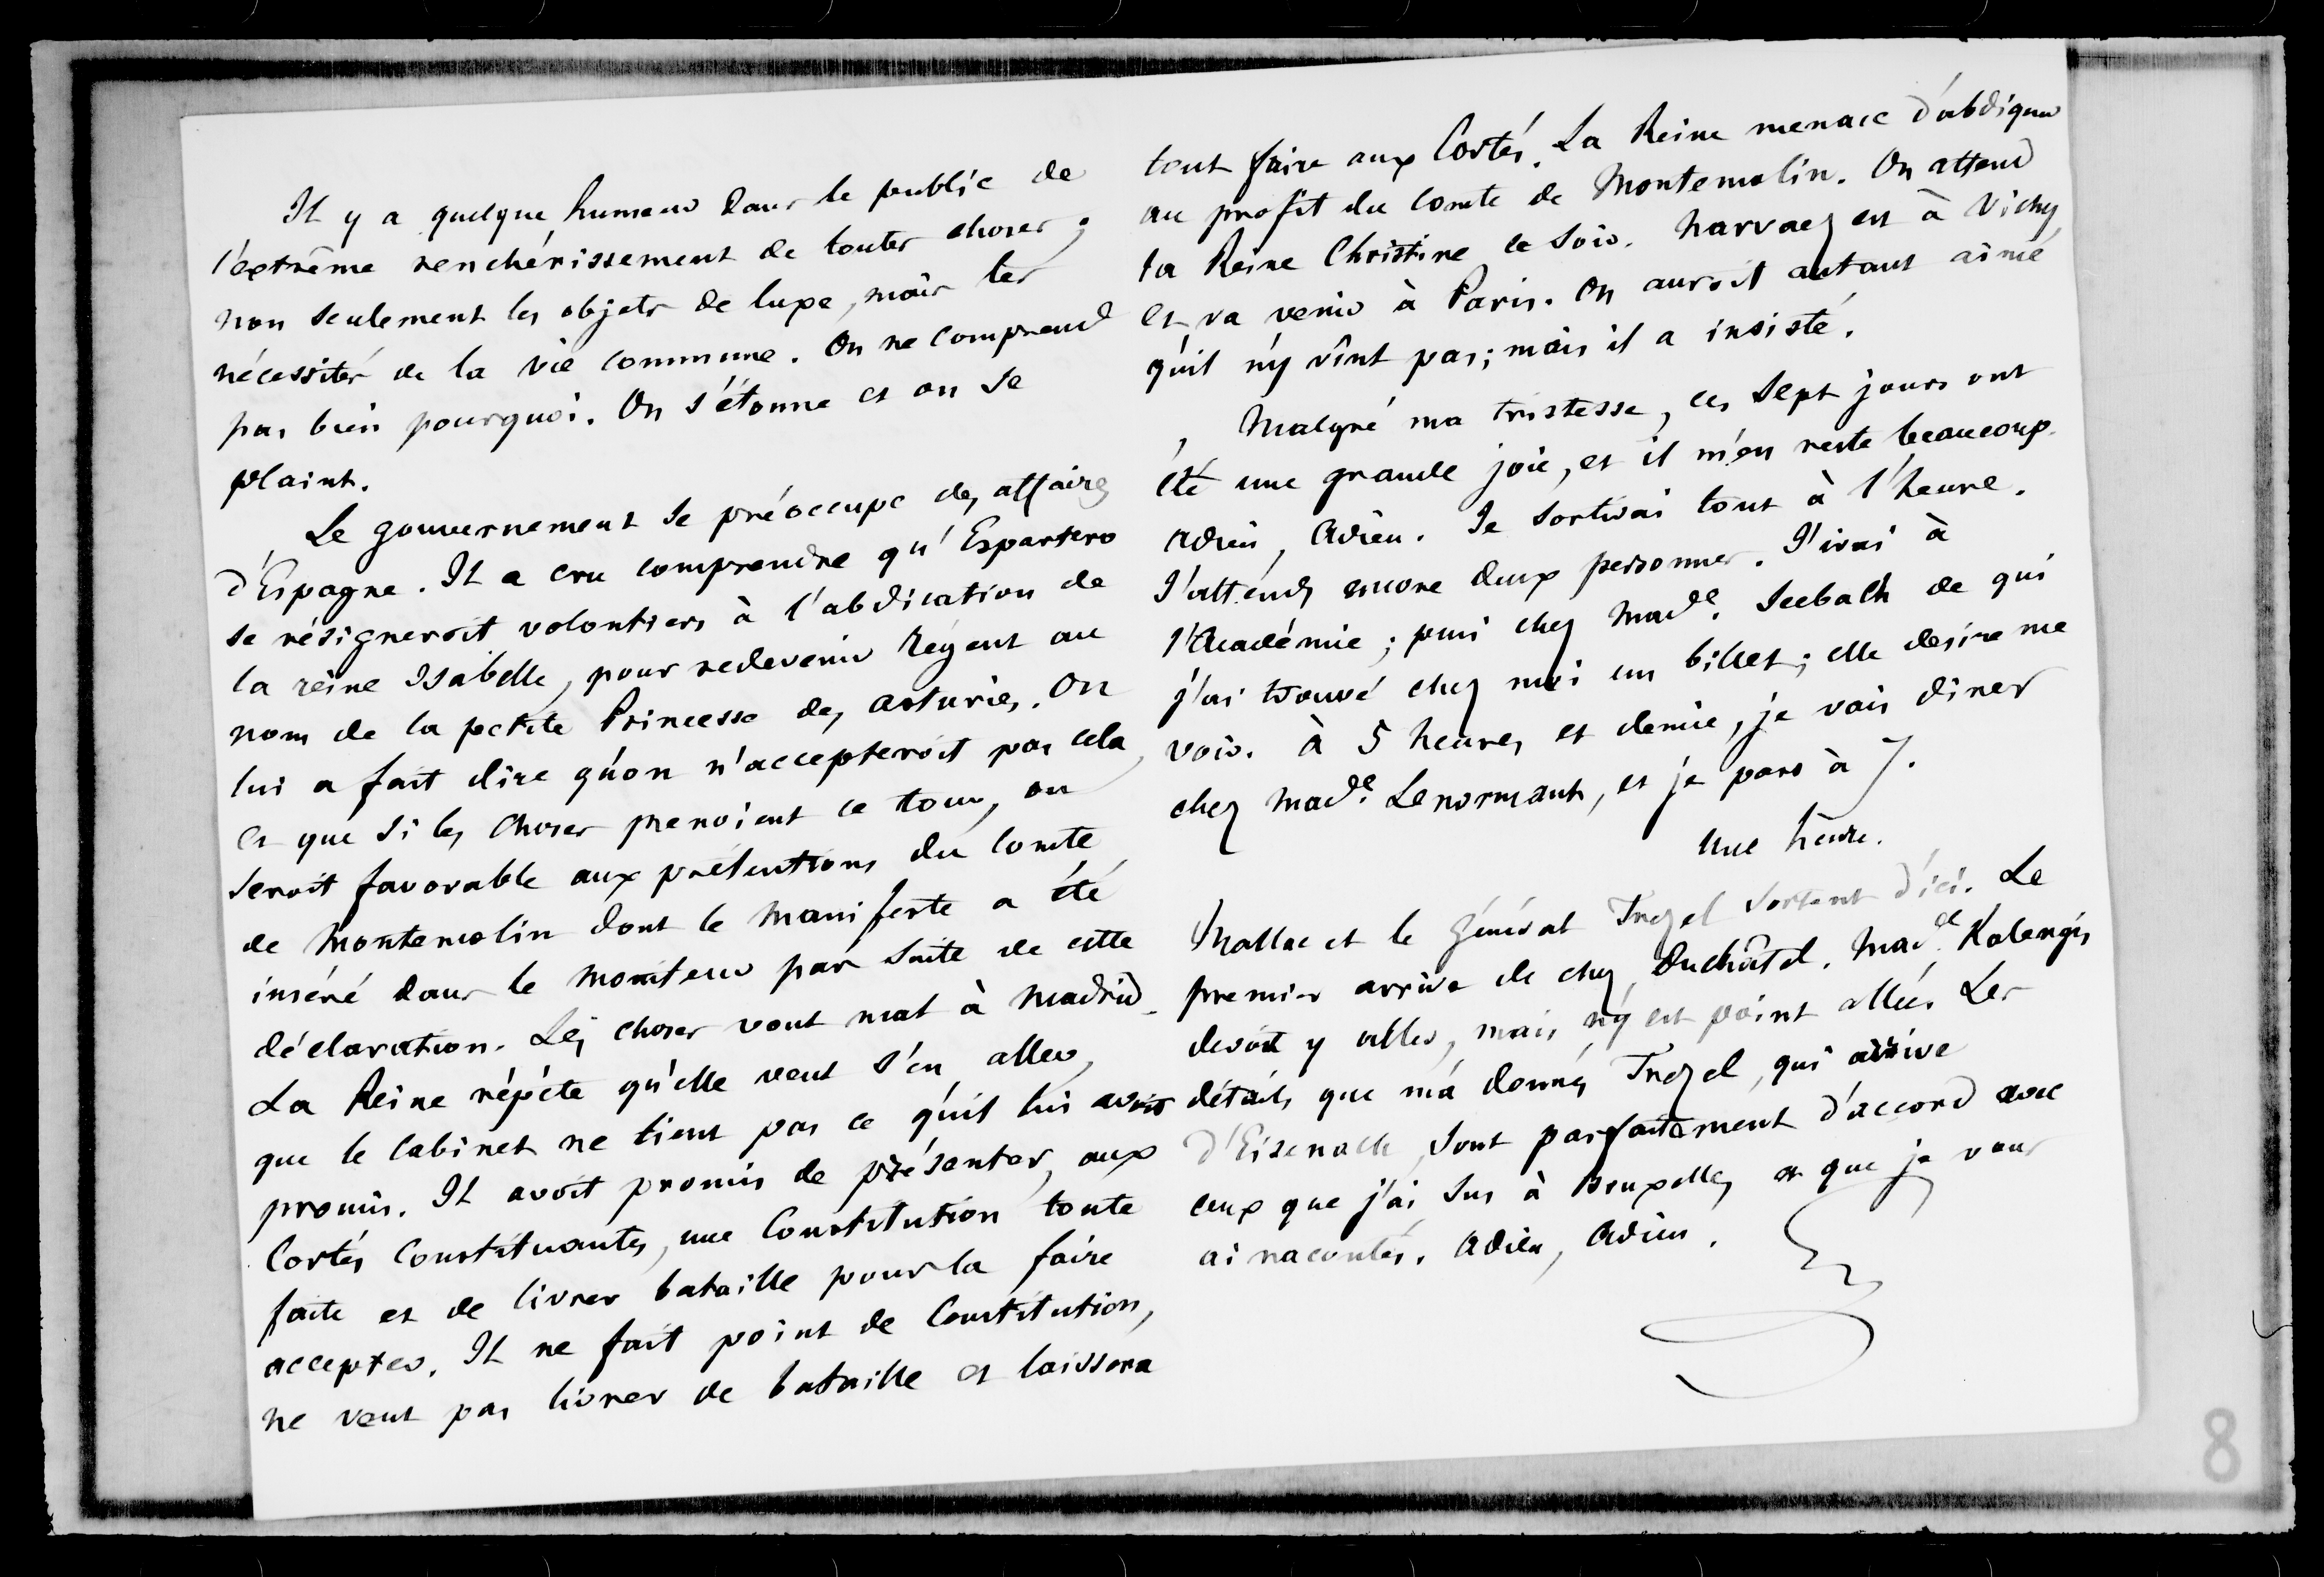 Il y a quelque humeur dans le public de
l'extrême renchérissement de toutes choses ;
non seulement les objets de luxe, mais les
nécessités de la vie commune. On ne comprend
pas bien pourquoi. On s'étonne et on se
plaint.
Le gouvernement se préoccupe des affaires
d'Espagne. Il a cru comprendre qu'Espartero
se résigneroit volontiers à l'abdication de
la reine Isabelle, pour redevenir Régent au
nom de la petite Princesse des asturies. On
lui a fait dire qu'on n'accepteroit pas cela,
et que si les choses prenoient ce tour, on
seroit favorable aux prétentions du Comte
de Montemolin dont le manifeste a été
inséré dans le moniteur par suite de cette
déclaration. Les choses vont mal à Madrid.
La Reine répéte qu'elle veut s'en aller,
que le Cabinet ne tient pas ce qu'il lui avoit
promis. Il avoit promis de présenter, aux
Cortés Constituantes, une Constitution toute
faite et de livrer bataille pour la faire
accepter. Il ne fait point de Constitution,
ne veut pas livrer de bataille et laissera
tout faire aux Cortés. La Reine menace d'abdiquer
au profit du Comte de Montemolin. On attend
la Reine Christine ce soir. Narvaez est à Vichy,
et va venir à Paris. On auroit autant aimé
qu'il n'y vînt pas ; mais il a insisté.
Malgré ma tristesse, ces sept jours ont
été une grande joie, et il m'en reste beaucoup.
Adieu, Adieu. Je sortirai tout à l'heure.
J'attends encore deux personnes. J'irai à
l'Académie ; puis chez Made. Seebach de qui
j'ai trouvé chez moi un billet ; elle desire me
voir. à 5 heures et demie, je vais diner
chez Made. Lenormant, et je pars à 7.
Une heure.
Mallac et le Général Trezel sortent d'ici. Le
premier arrive de chez Duchâtel. Made. Kalergis
devoit y aller, mais n'y est point allée. Les
détails que m'a donnés Trezel, qui arrive
d'Eisenach, sont parfaitement d'accord avec
ceux que j'ai sus à Bruxelles et que je vous
ai racontés. Adieu, Adieu.
8